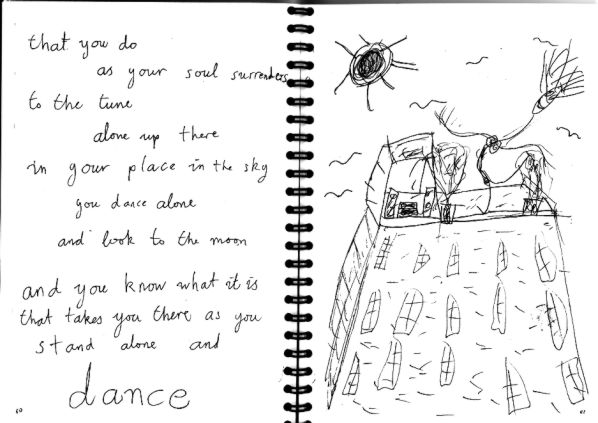 that you do
as your soul surrenders
to the tune
alone up there
in your place in the sky
you dance alone
and look to the moon
and you know what it is
that takes you there as you
stand alone and
dance
60
61